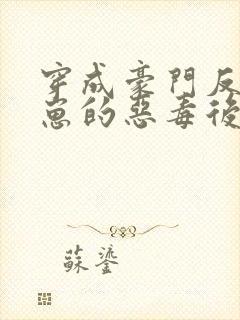 穿成豪門反
崽的惡毒後
蘇鎏